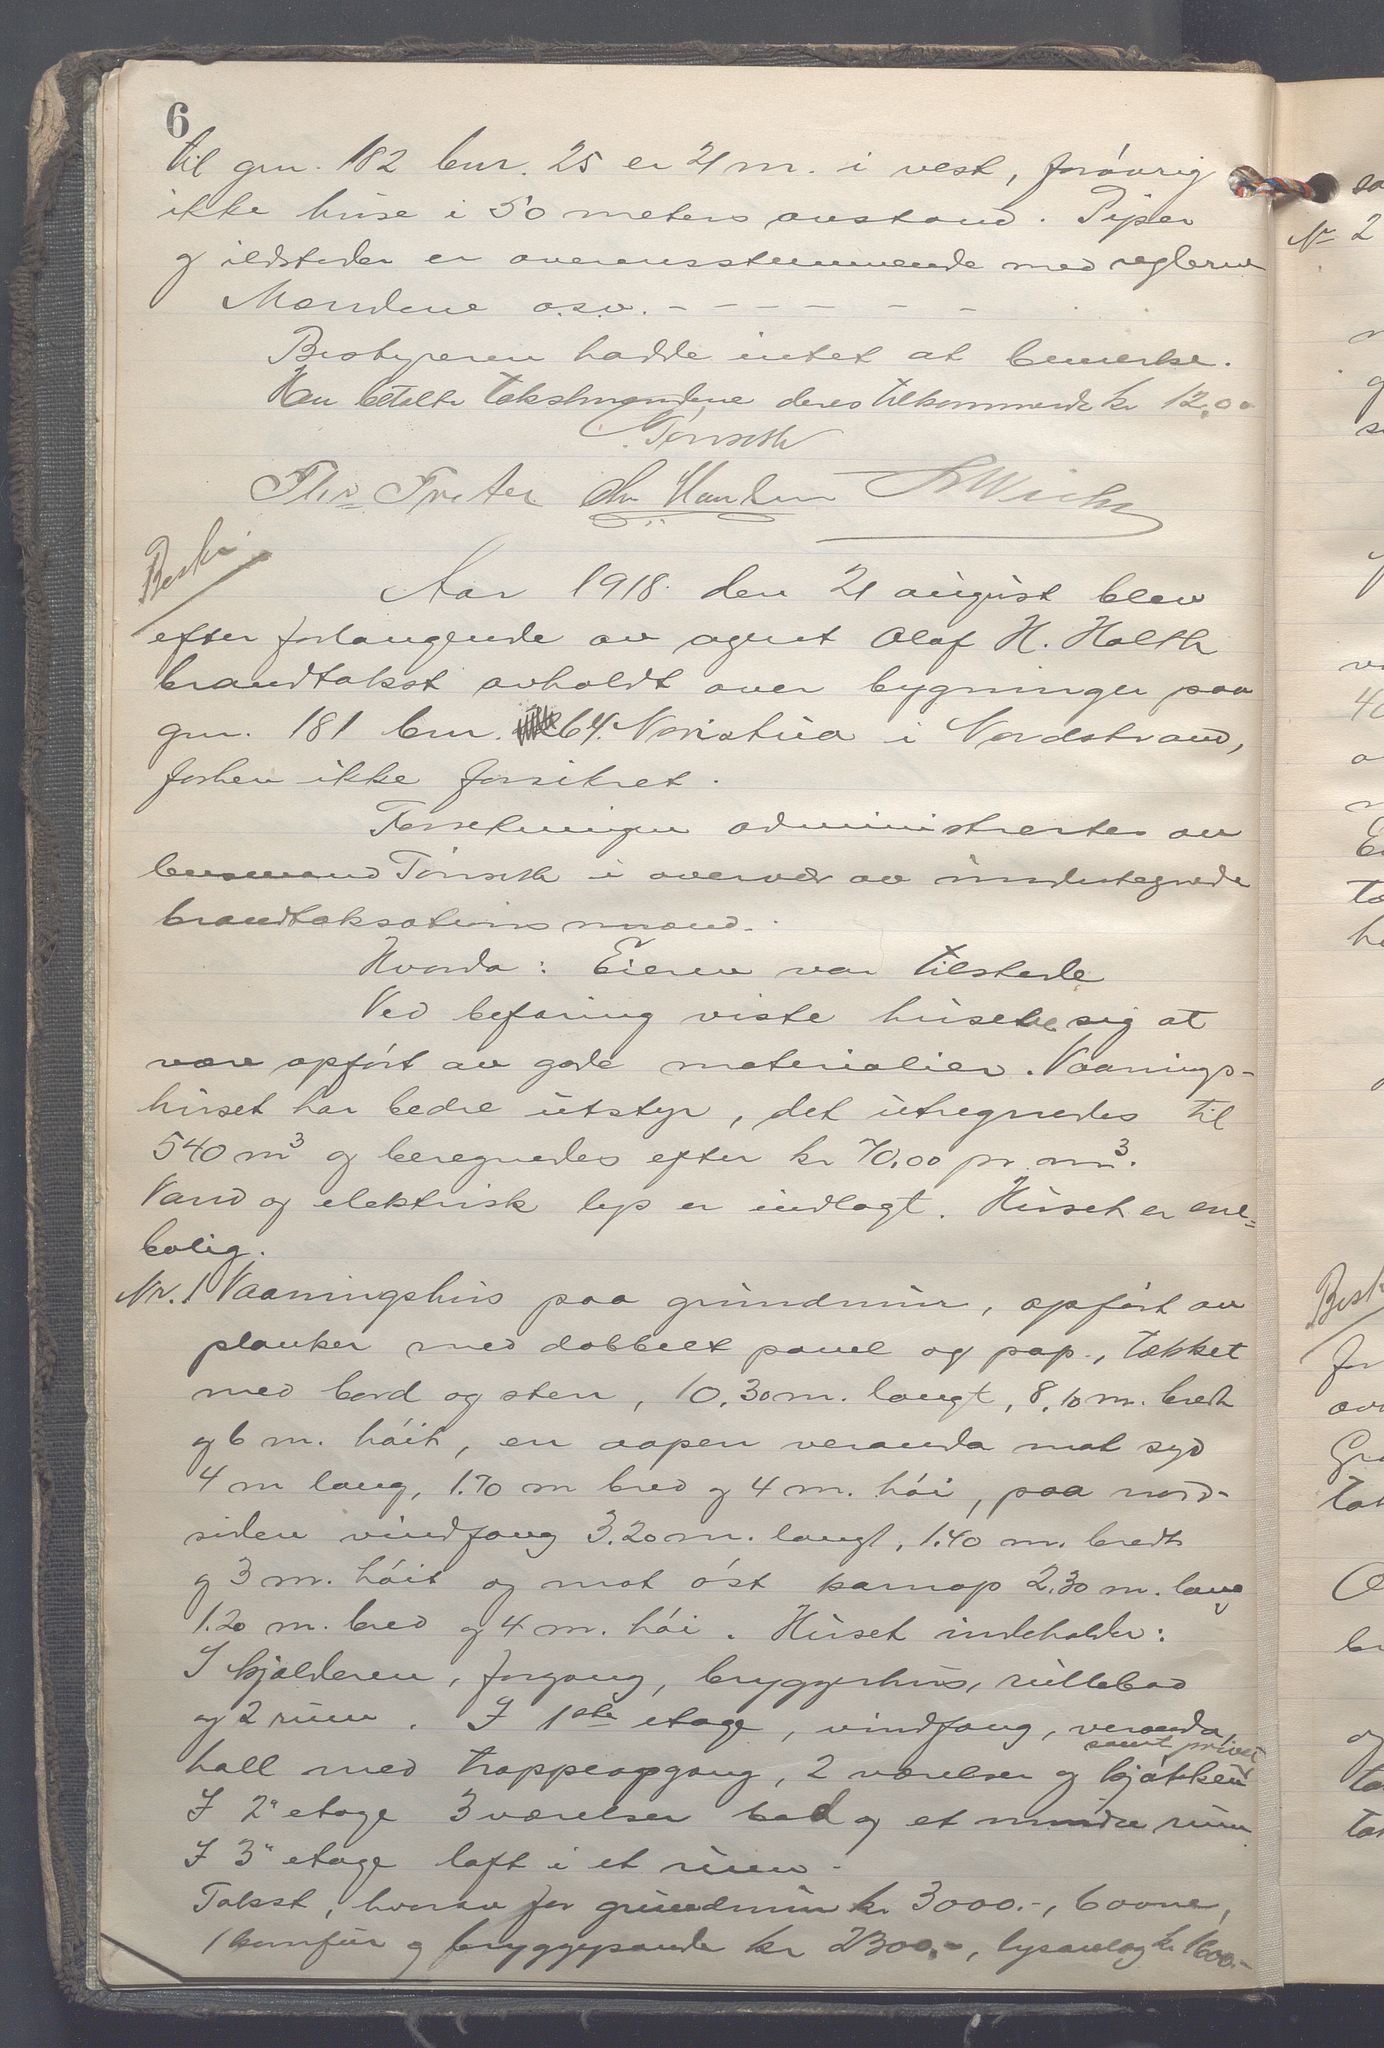 6
til gnr. 182 bnr. 25 er 21 m. i vest, forövrig
ikke huse i 50 meters avstand. Piper
og ildsteder er overensstemmende med reglerne
Mændene o.s.v. - - - - -
Bestyreren hadde intet at bemerke.
Han betalte takstmændene deres tilkommende kr 12,00
Tönseth
Thv. Treter Chr Haug
Beskr.
Aar 1918 den 21 august blev
efter forlangende av agent Olaf H. Holth
brandtakst avholdt over bygninger paa
gnr. 181 bnr. 64. Norstua i Nordstrand,
forhen ikke forsikret.
Forretningen administrertes av
lensmand Tönseth i overvær av undertegnede
brandtaksationsmænd.
Hvorda: Eieren var tilstede
Ved befaring viste husene sig at
være opfört av gode materialier. Vaanings-
huset har bedre utstyr, det utregnedes til
540 m3 og beregnedes efter kr 70,00 pr m3.
Vand og elektrisk lys er indlagt. Huset er ene=
bolig.
Nr. 1 Vaaningshus paa grundmur, opfört av
planker med dobbelt panel og pap., tækket
med bord og sten, 10.30 m. langt, 8,10 m. bredt
og 6 m. höit, en aapen veranda mot syd
4 m lang, 1.70 m bred og 4 m. höi, paa nord-
siden vindfang 3.20 m. langt, 1.40 m. bredt
og 3 m. höit og mot öst karnap 2.30 m. lang
1.20 m. bred og 4 m. höi. Huset indeholder:
I kjælderen, forgang, bryggerhus, rullebod
og 2 rum. I 1ste etage, vindfang, veranda,
hall med trappeopgang, 2 værelser og kjökken samt privet
I 2" etage 3 værelser bad og et mindre rum
I 3" etage loft i et rum.
Takst, hvorav for grundmur kr 3000.-, 6 ovne,
1 komfur og bryggepande kr 2300.-, lysanlæg kr 1600.-
Nr 2
Besk